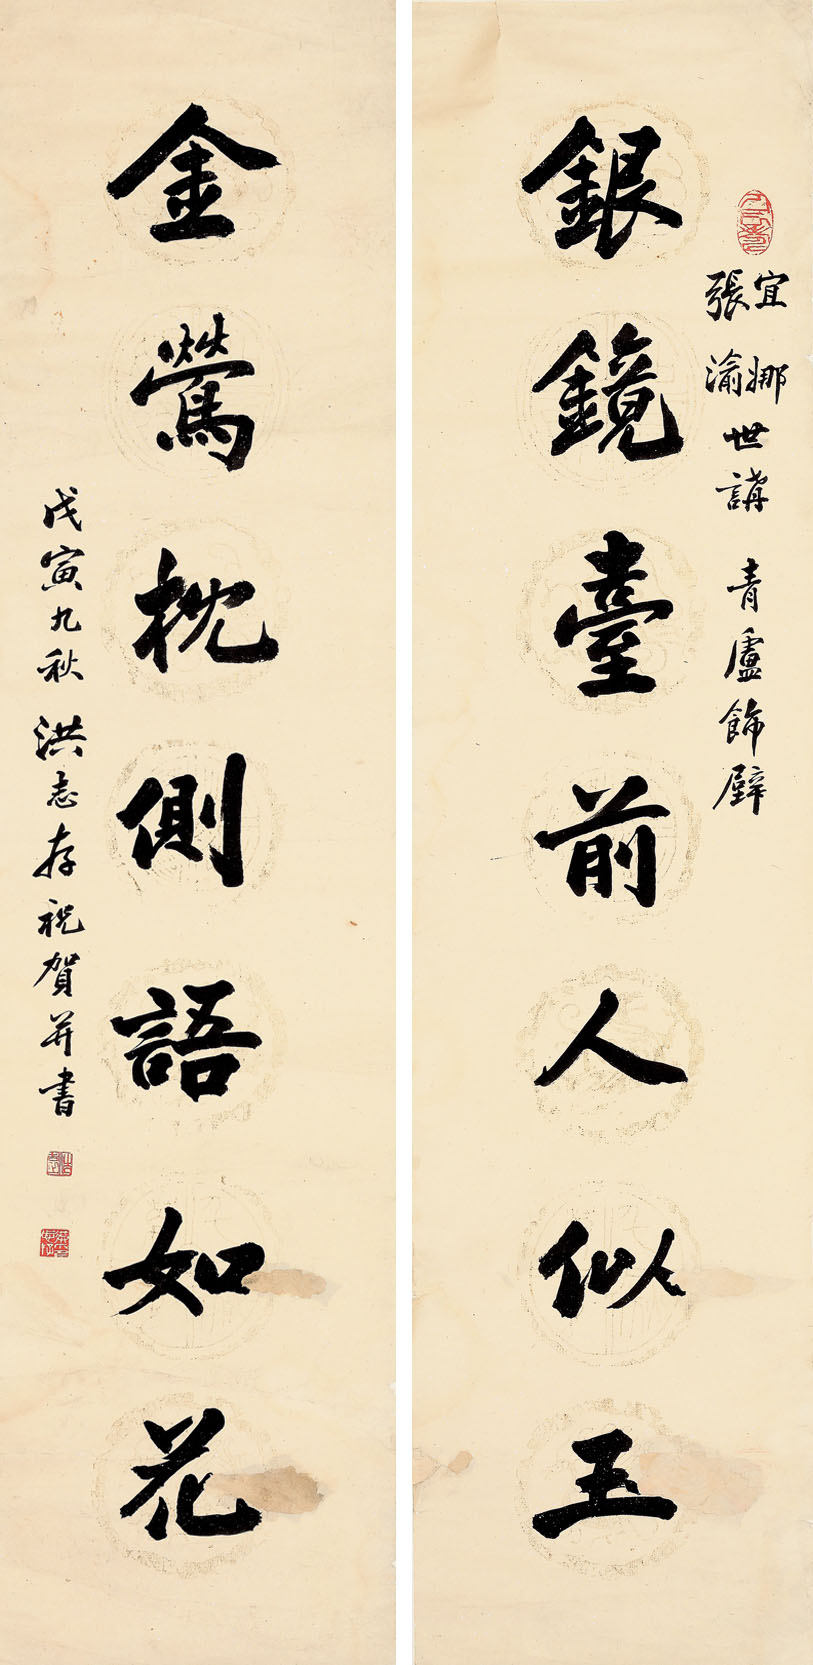 銀鏡臺前人似玉
宜娜
張渝
世講 青廬飾壁
金鶯枕側語如花
戊寅九秋 洪志存祝賀並書